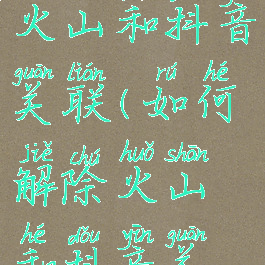 火山和抖音
guān lián rú hé
关联(如何
jiě chú huǒ shān
解除火山
hé dǒu yīn guān
和抖音关